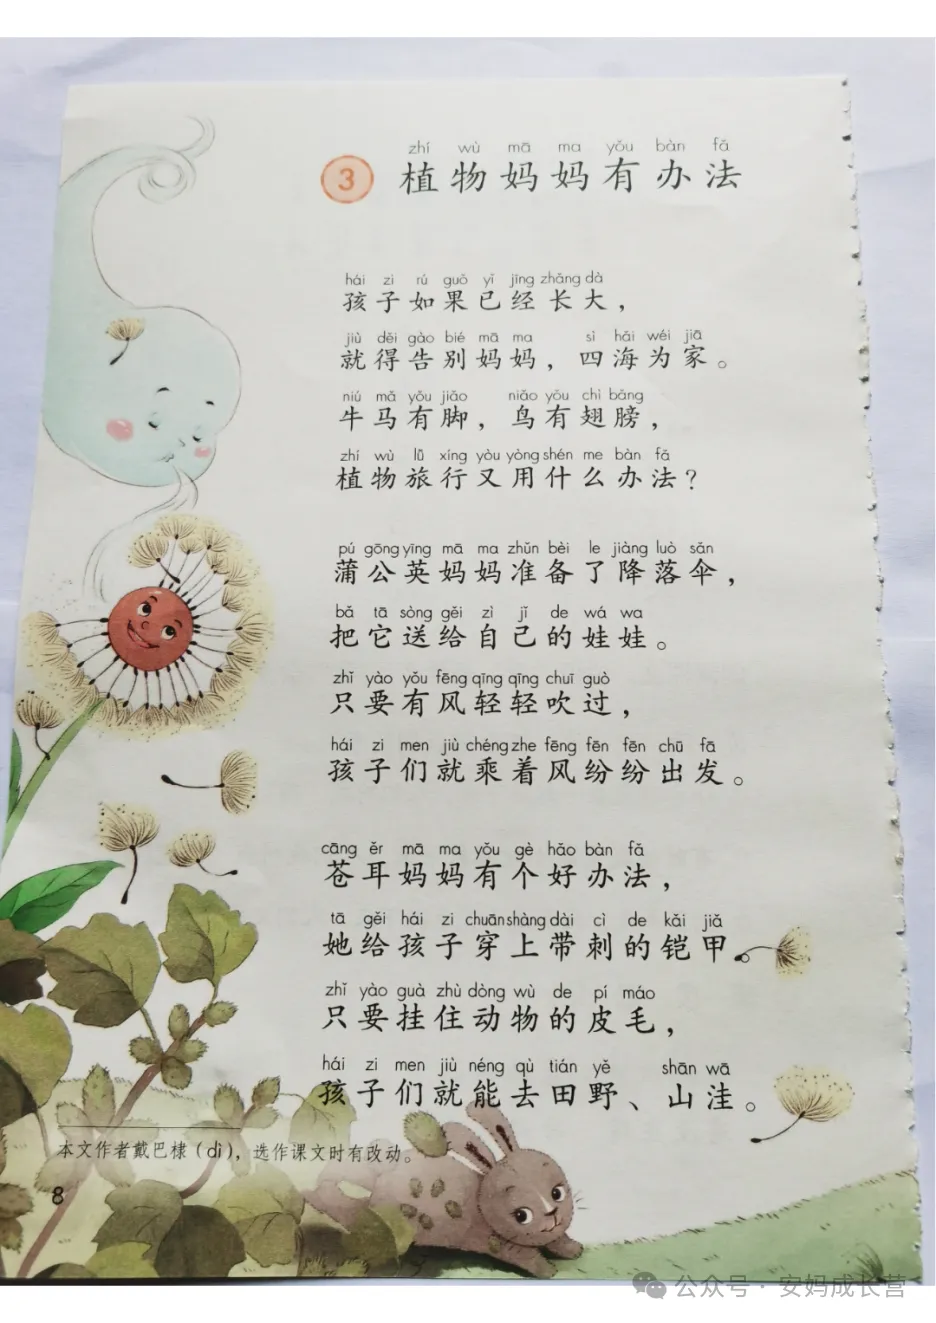 zhí wù mā ma yǒu bàn fǎ
3 植物妈妈有办法
hái zi rú guǒ yǐ jīng zhǎng dà
孩子如果已经长大，
jiù děi gào bié mā ma sì hǎi wéi jiā
就得告别妈妈，四海为家。
niú mǎ yǒu jiǎo niǎo yǒu chì bǎng
牛马有脚，鸟有翅膀，
zhí wù lǚ xíng yòu yòng shén me bàn fǎ
植物旅行又用什么办法？
pú gōng yīng mā ma zhǔn bèi le jiàng luò sǎn
蒲公英妈妈准备了降落伞，
bǎ tā sòng gěi zì jǐ de wá wa
把它送给自己的娃娃。
zhǐ yào yǒu fēng qīng qīng chuī guò
只要有风轻轻吹过，
hái zi men jiù chéng zhe fēng fēn fēn chū fā
孩子们就乘着风纷纷出发。
cāng ěr mā ma yǒu gè hǎo bàn fǎ
苍耳妈妈有个好办法，
tā gěi hái zi chuān shàng dài cì de kǎi jiǎ
她给孩子穿上带刺的铠甲。
zhǐ yào guà zhù dòng wù de pí máo
只要挂住动物的皮毛，
hái zi men jiù néng qù tián yě shān wā
孩子们就能去田野、山洼。
本文作者戴巴棣（dì），选作课文时有改动。
8
公众号·安妈成长营